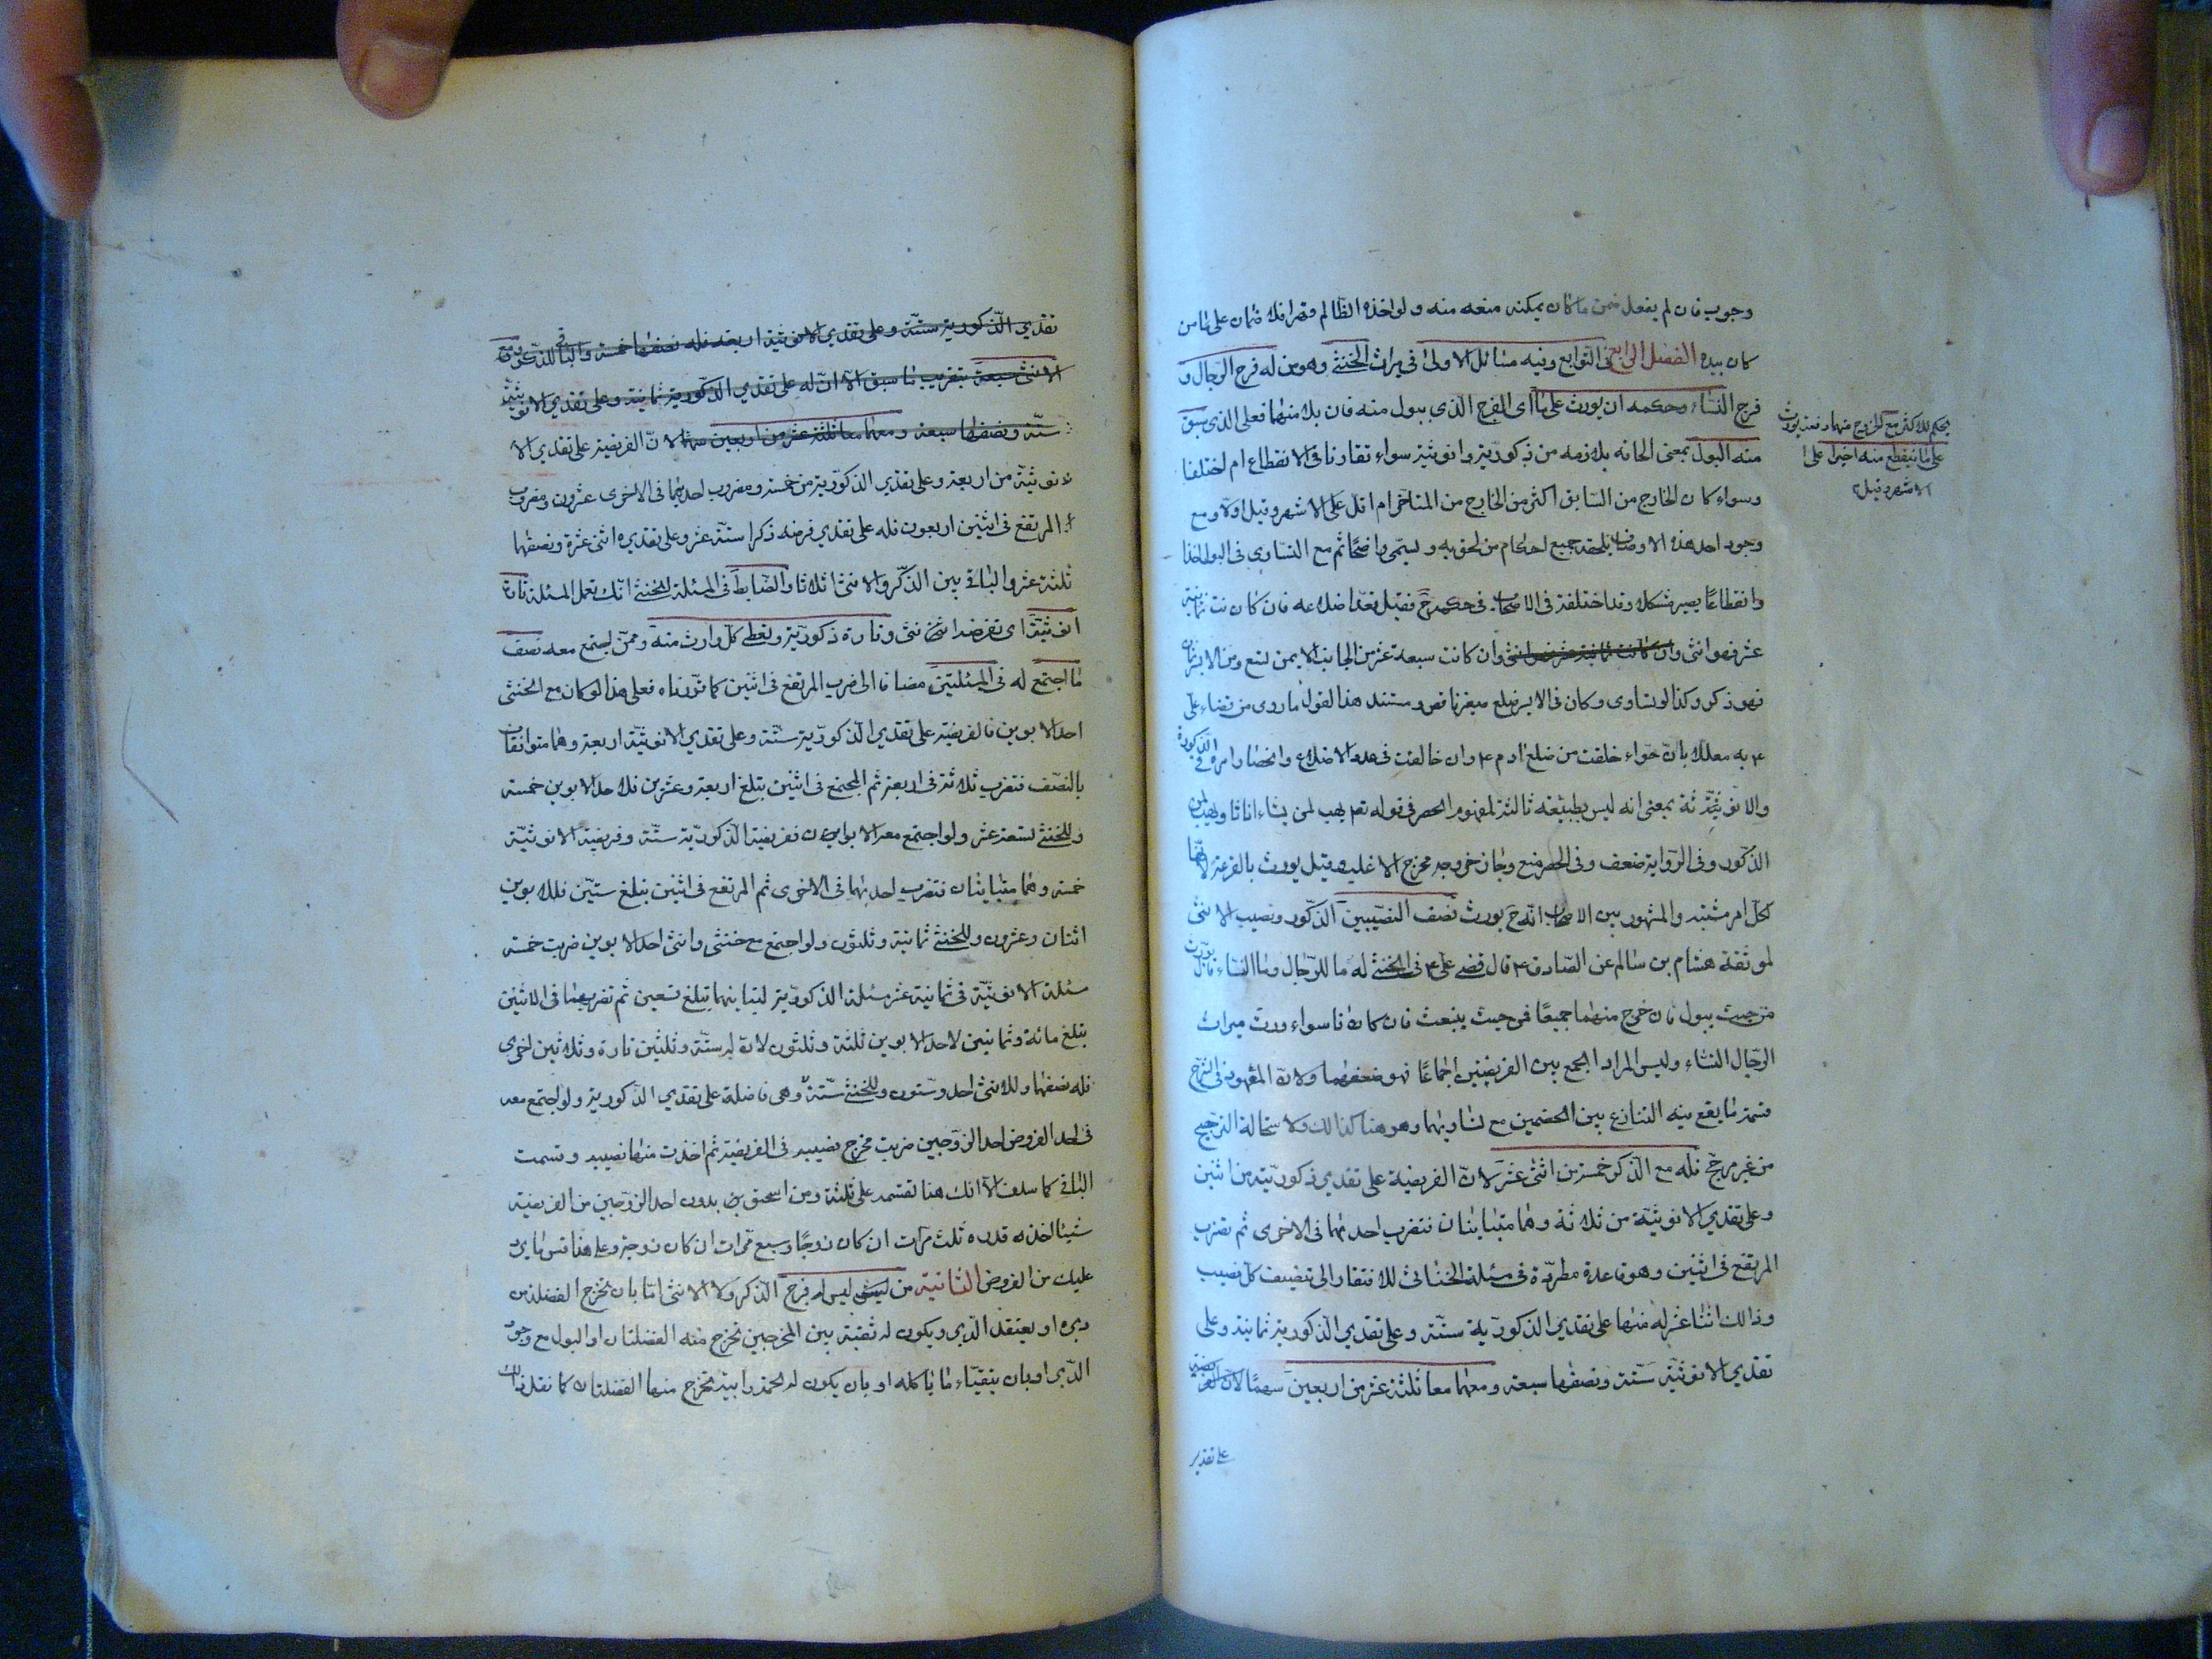 وجوب فان لم يفعل ضمن ما كان يمكنه منعه منه ولو اخذه الظالم قهرا فلا ضمان على من
كان بيده الفصل الرابع فى التوابع وفيه مسائل الاولى فى ميراث الخنثى وهو من له فرج الرجال و
فرج النساء وحكمه ان يورث على ما اى الفرج الذى يبول منه فان بال منهما فعلى الذى سبق
منه البول بمعنى الحاقه بلازمه من ذكورية وانوثية سواء تقارنا فى الانقطاع ام اختلفا
وسواء كان الخارج من السابق اكثر من الخارج من المتاخر ام اقل على الاشهر وقيل اولا ومع
وجود احد هذه الاوصاف يلحقه جميع احكام من لحق به ويسمى واضحا ثم مع التساوى فى البول اخذا
وانقطاعا يصير مشكلا وقد اختلفت فى الاصحاب فى حكمه ح فقيل تعد اضلاعه فان كانت ثمانية
عشر فهو انثى وان كانت سبعة عشر من الجانب الايمن تسع ومن الايسر ثمان
فهو ذكر وكذا لو تساوى وكان فى الايسر ضلع صغير ناقص ومستند هذا القول ما روى من قضاء على
ع به معللا بان حواء خلقت من ضلع ادم ع وان خالفت فى عدد الاضلاع وانحصار امره فى الذكورة
والانوثية بمعنى انه ليس بطبيعة ثالثة لمفهوم الحصر فى قوله تع يهب لمن يشاء اناثا ويهب لمن
الذكور وفى الرواية ضعف وفى الحصر منع وجاز خروجه مخرج الاغلب وقيل يورث بالقرعة لانها
لكل امر مشتبه والمشهور بين الاصحاب انه ح يورث نصف النصيبين الذكور ونصيب الانثى
لموثقة هشام بن سالم عن الصادق ع قال قضى على ع فى الخنثى له ما للرجال وما النساء قال يورث
من حيث يبول فان خرج منهما جميعا فمن حيث ينبعث فان كانا سواء ورث ميراث
الرجال النساء وليس المراد الجمع بين الفريضتين اجماعا فهو نصفهما ولان المعهود فى الشرع
قسمة ما يقع فيه التنازع بين الخصمين مع تساويهما وهو هنا كذالك ولاستحالة الترجيح
من غير مرجح فله مع الذكر خمسة من اثنى عشر لان الفريضة على تقدير ذكوريته من اثنين
وعلى تقدير الانوثية من ثلاثة وهما متباينان فتضرب احدهما فى الاخرى ثم تضرب
المرتفع فى اثنين وهو قاعدة مطردة فى مسئلة الخناثى للافتقار الى تنصيف كل نصيب
وذالك اثنا عشر له منها على تقدير الذكورية ستة وعلى تقدير الذكورية ثمانية وعلى
تقدير الانوثية ستة ونصفها سبعة ومعهما معا ثلثة عشر من اربعين سهما لان الفريضة
على تقدير
يحكم للاكثر مع الخروج منهما دفعة يورث
على ما ينقطع منه اخيرا على
الاشهر وقيل
تقدير الذكورية ستة وعلى تقدير الانوثية اربعة فله نصفها خمسة والباقى للذكر ومع
الانثى سبعة بتقريب ما سبق الا ان له على تقدير الذكورية ثمانية وعلى تقدير الانوثية
ستة ونصفها سبعة ومعهما معا ثلثة عشر من اربعين سهما لان الفريضة على تقدير الا
لانوثية من اربعة وعلى تقدير الذكورية من خمسة ومضروب احديهما فى الاخرى عشرون ومضروب
المرتفع فى اثنين اربعون فله على تقدير فرضه ذكرا ستة عشر وعلى تقديره انثى عشرة ونصفها
ثلثة عشر والباقى بين الذكر والانثى اثلاثا والضابط فى المسئلة الخنثى انك تعمل المسئلة تارة
انوثية اى تفرضه انثى وتارة ذكورية وتعطى كل وارث منه وممن اجتمع معه نصف
ما اجتمع له فى المسئلتين مضافا الى ضرب المرتفع فى اثنين كما قررناه فعلى هذا لو كان مع الخنثى
احد الابوين فالفريضة على تقدير الذكورية ستة وعلى تقدير الانوثية اربعة وهما متوافقان
بالنصف فتضرب ثلاثة فى اربعة ثم المجتمع فى اثنين يبلغ اربعة وعشرين فلاحد الابوين خمسة
وللخنثى تسعة عشر ولو اجتمع معه الابوان ففريضة الذكورية ستة وفريضة الانوثية
خمسة وهما متباينان فتضرب احديهما فى الاخرى ثم المرتفع فى اثنين يبلغ ستين فللابوين
اثنان وعشرون وللخنثى ثمانية وثلثون ولو اجتمع مع خنثى وانثى احد الابوين ضربت خمسة
مسئلة الانوثية فى ثمانية عشر مسئلة الذكورية لتباينهما تبلغ تسعين ثم تضربها فى الاثنين
يبلغ مائة وثمانين لاحد الابوين ثلثة وثلثون لان له ستة وثلثين تارة وثلاثين اخرى
فله نصفها وللانثى احد وستون وللخنثى ستة وهى فاضلة على تقدير الذكورية ولو اجتمع معه
فى احد الفروض احد الزوجين ضربت مخرج نصيبه فى الفريضة ثم اخذت منها نصيبه وقسمت
الباقى كما سلف الا انك هنا تقسمه على ثلثة ومن استحق بدون احد الزوجين من الفريضة
شيئا اخذه قدره ثلث مرات ان كان زوجا وسبع مرات ان كان زوجة وعلى هذا قس ما يرد
عليك من الفروض الثانية من ليس له فرج الذكر ولا الانثى اما بان تخرج الفضلة من
دبره او يفتقد الدبر ويكون له ثقبة بين المخرجين تخرج منه الفضلتان او البول مع وجود
الدبر او بان يتقيأ ما ياكله او بان يكون له لحمة رابية تخرج منها الفضلتان كما نقل ذلك